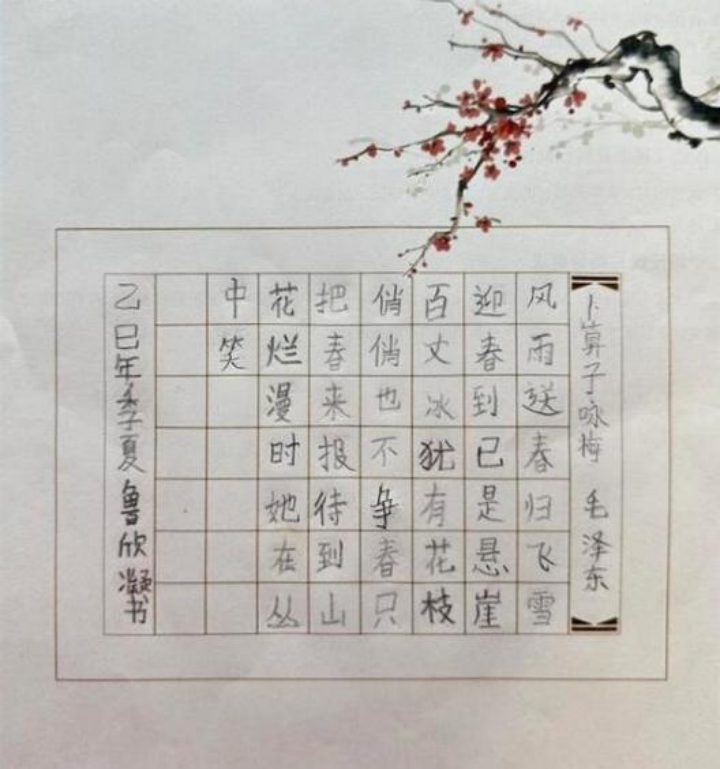 卜算子·咏梅 毛泽东
风雨送春归飞雪
迎春到已是悬崖
百丈冰犹有花枝
俏俏也不争春只
把春来报待到山
花烂漫时她在丛
中笑
乙巳年季夏鲁欣凝书